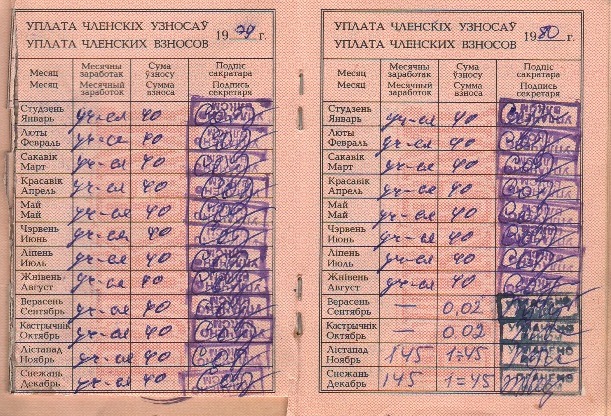 УПЛАТА ЧЛЕНСКІХ УЗНОСАЎ
УПЛАТА ЧЛЕНСКИХ ВЗНОСОВ
1979 г.
Месяц
Месяц
Месячны заработак
Месячный заработок
Сума ўзносу
Сумма взноса
Подпіс сакратара
Подпись секретаря
Студзень
Январь уч-ся 40
Люты
Февраль уч-ся 40
Сакавік
Март уч-ся 40
Красавік
Апрель уч-ся 40
Май
Май уч-ся 40
Чэрвень
Июнь уч-ся 40
Ліпень
Июль уч-ся 40
Жнівень
Август уч-ся 40
Верасень
Сентябрь уч-ся 40
Кастрычнік
Октябрь уч-ся 40
Лістапад
Ноябрь уч-ся 40
Снежань
Декабрь уч-ся 40
УПЛАТА ЧЛЕНСКІХ УЗНОСАЎ
УПЛАТА ЧЛЕНСКИХ ВЗНОСОВ
1980 г.
Месяц
Месяц
Месячны заработак
Месячный заработок
Сума ўзносу
Сумма взноса
Подпіс сакратара
Подпись секретаря
Студзень
Январь уч-ся 40
Люты
Февраль уч-ся 40
Сакавік
Март уч-ся 40
Красавік
Апрель уч-ся 40
Май
Май уч-ся 40
Чэрвень
Июнь уч-ся 40
Ліпень
Июль уч-ся 40
Жнівень
Август уч-ся 40
Верасень
Сентябрь — 0,02
Кастрычнік
Октябрь — 0.02
Лістапад
Ноябрь 145 1=45
Снежань
Декабрь 145 1=45